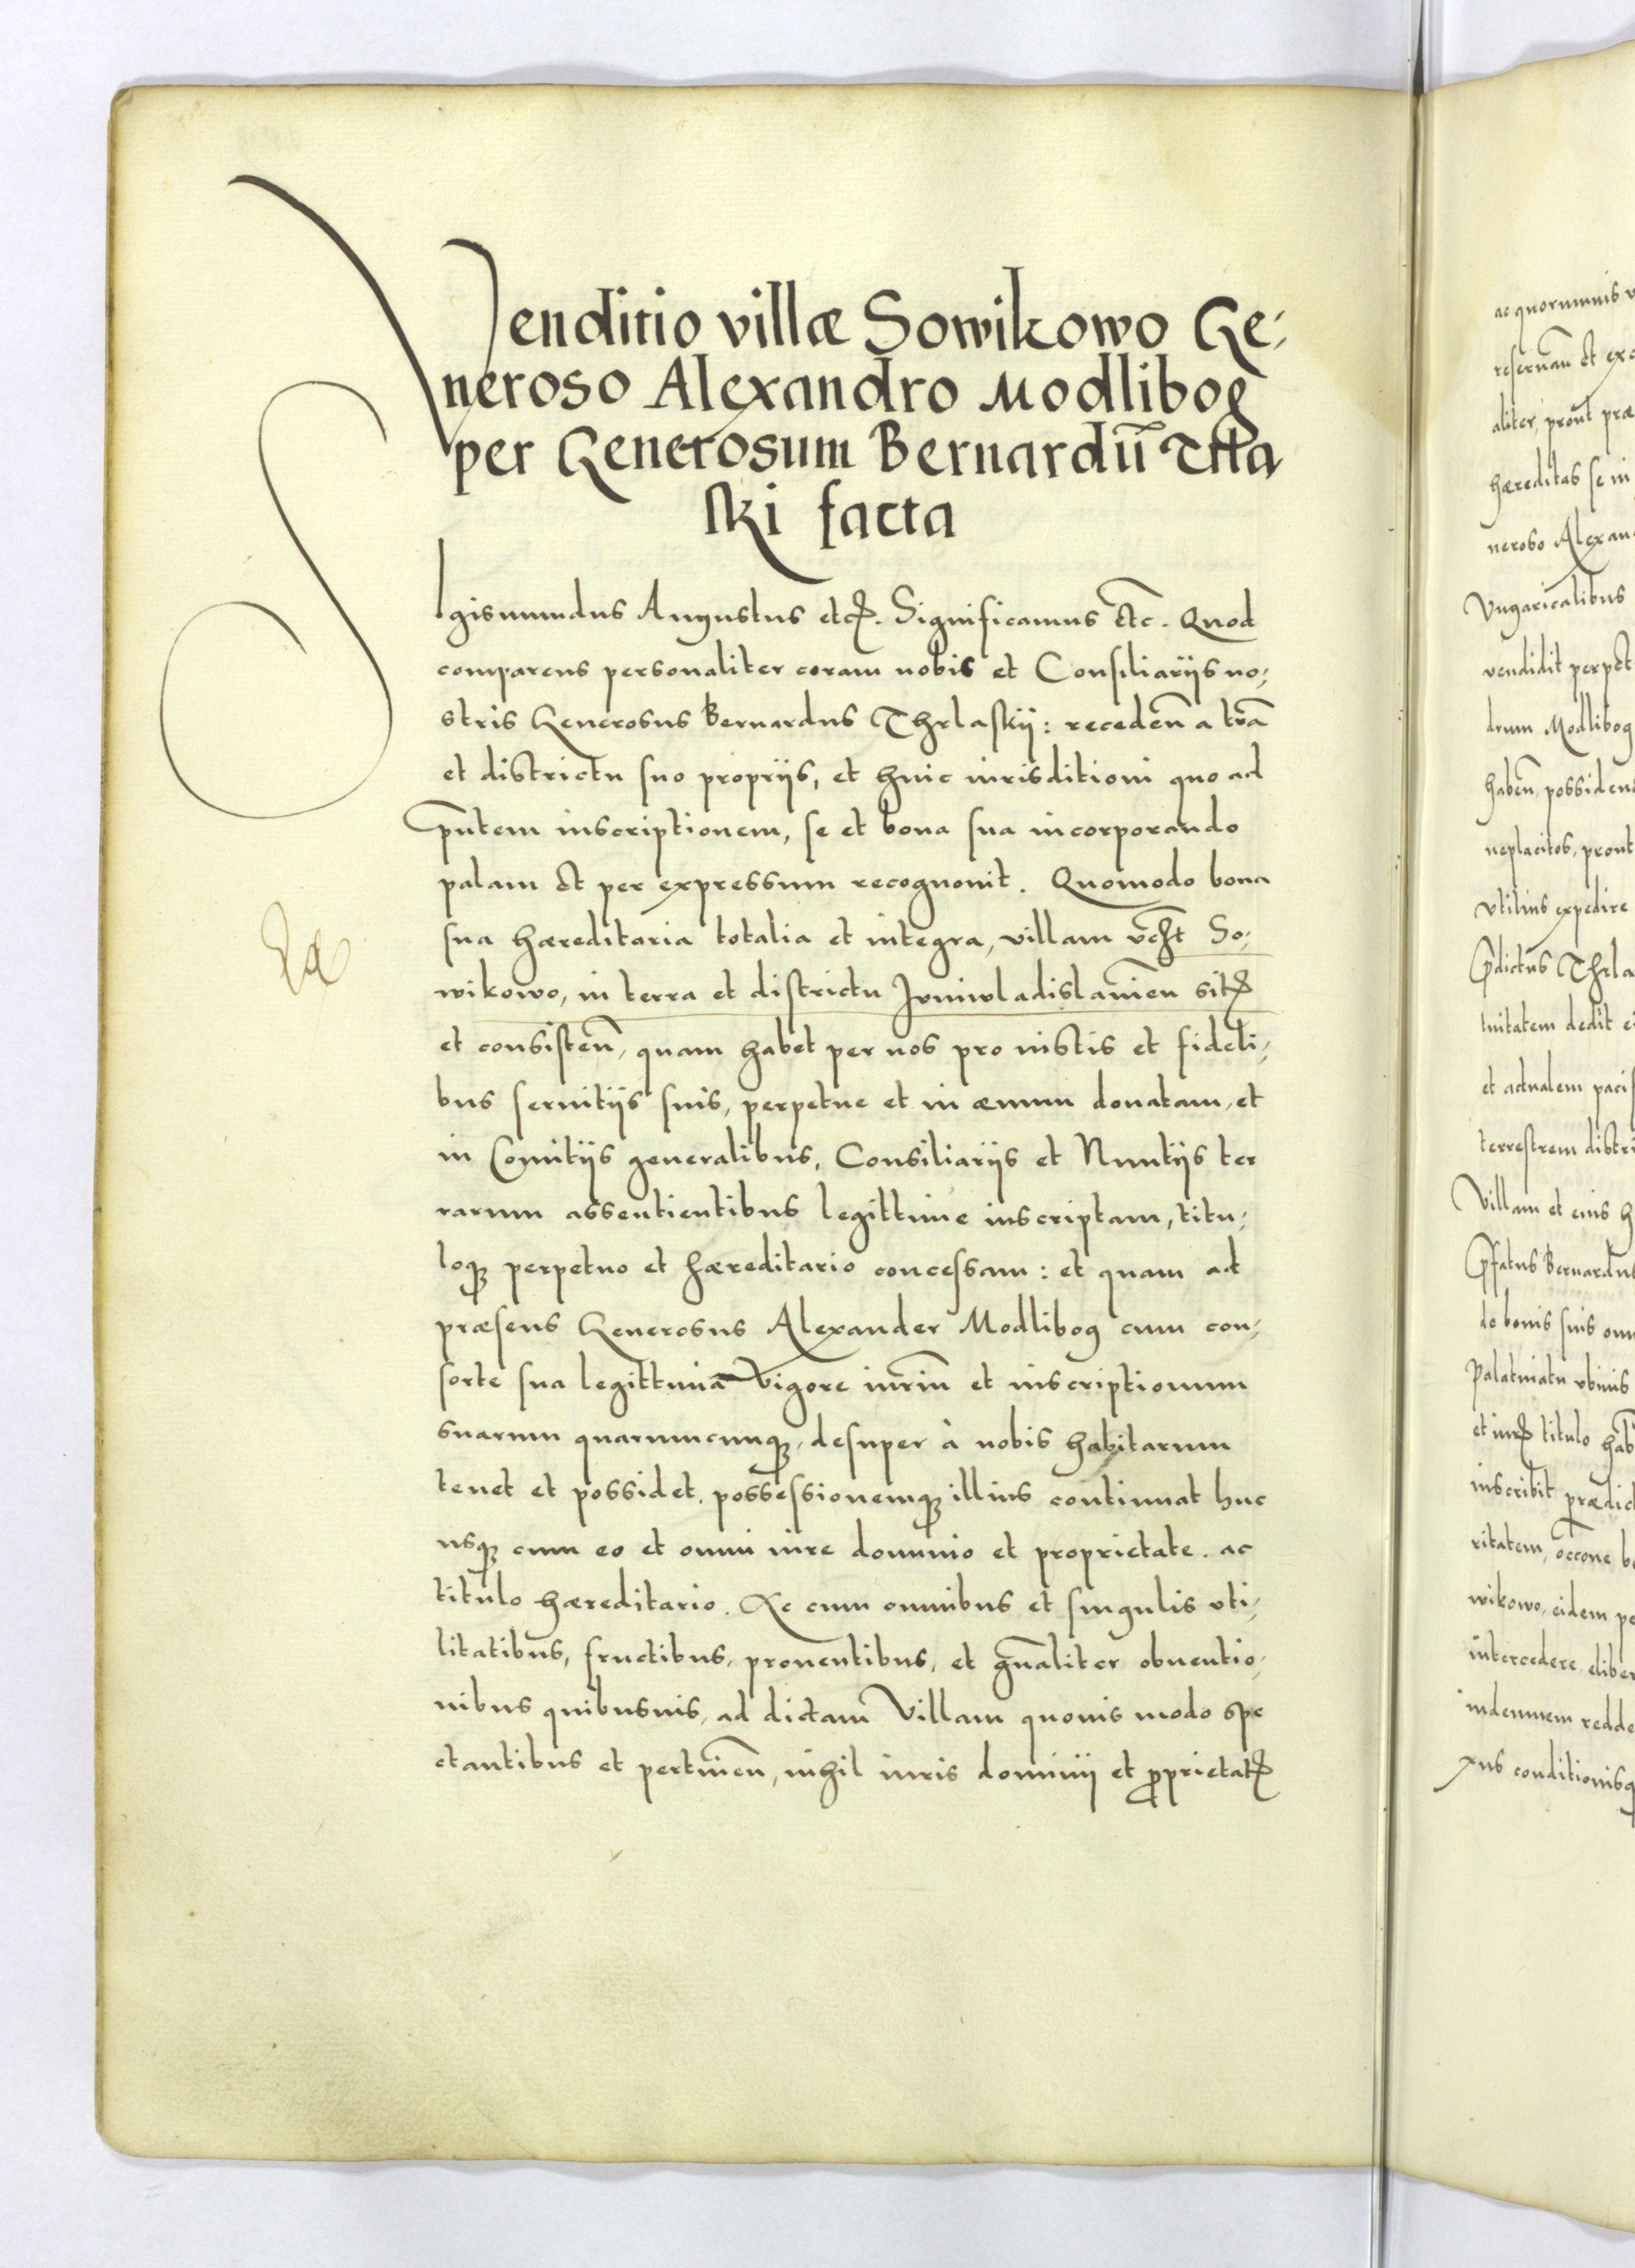 Venditio villæ Sowikowo Ge-
neroso Alexandro Modlibog
per Generosum Bernardū
ski facta
Sigismundus Augustus etc. Significamus etc. Quod
comparens personaliter coram nobis et Consiliarijs no-
stris Generosus Bernardus Thrlaskij: recedeñ a trā
et districtu suo proprijs, et huic iurisditioni quo ad
p̄ntem inscriptionem, se et bona sua incorporando
palam et per expressum recognouit. Quomodo bona
sua hæreditaria totalia et integra, villam vc̄ht So-
wikowo, in terra et districtu Juniwladislauieñ sitꝭ
et consisteñ, quam habet per nos pro iustis et fideli-
bus seruitijs suis, perpetue et in æuum donatam, et
in Comitijs generalibus, Consiliarijs et Nuntijs ter
rarum assentientibus legittime inscriptam, titu-
loqꝫ perpetuo et hæreditario concessam: et quam ad
præsens Generosus Alexander Modlibog cum con-
sorte sua legittima Vigore iuriū et inscriptionum
suarum quarumcunqꝫ, desuper à nobis habitarum
tenet et possidet, possessionemqꝫ illius continuat huc
usqꝫ cum eo et omni iure dominio et proprietate. ac
titulo hæreditario. Ac cum omnibus et singulis vti-
litatibus, fructibus, prouentibus, et gn̄aliter obuentio-
nibus quibusuis, ad dictam Villam quouis modo spe
ctantibus et pertineñ, nihil iuris dominij et ꝓprietatꝭ
ac quorumuis
reseruañ et
aliter, prout
hæreditas se in
neroso
Vngaricalibus
vendidit
drum Modlibog
habeñ,
neplacitos, prout
vtilius expedire
p̄dictus
tuitatem dedit
et actualem
terrestrem
Villam et eius
p̄fatus
de bonis suis
Palatinatu
titulo
inscribit
ritatem,
wikowo, eidem
intercedere,
indemnem